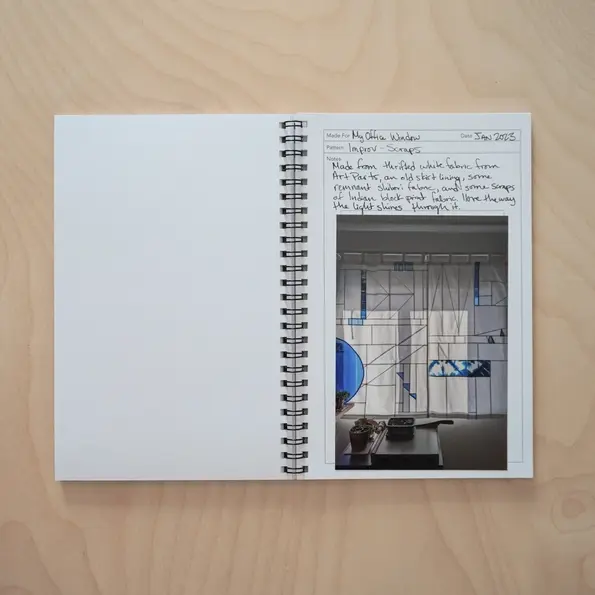 Made For My Office Window Date JAN 2023
Pattern Improv - Scraps
Notes
Made from thrifted white fabric from
Art Parts, an old skirt lining, some
remnant shibori fabric, and some scraps
of Indian block print fabric. I love the way
the light shines through it.